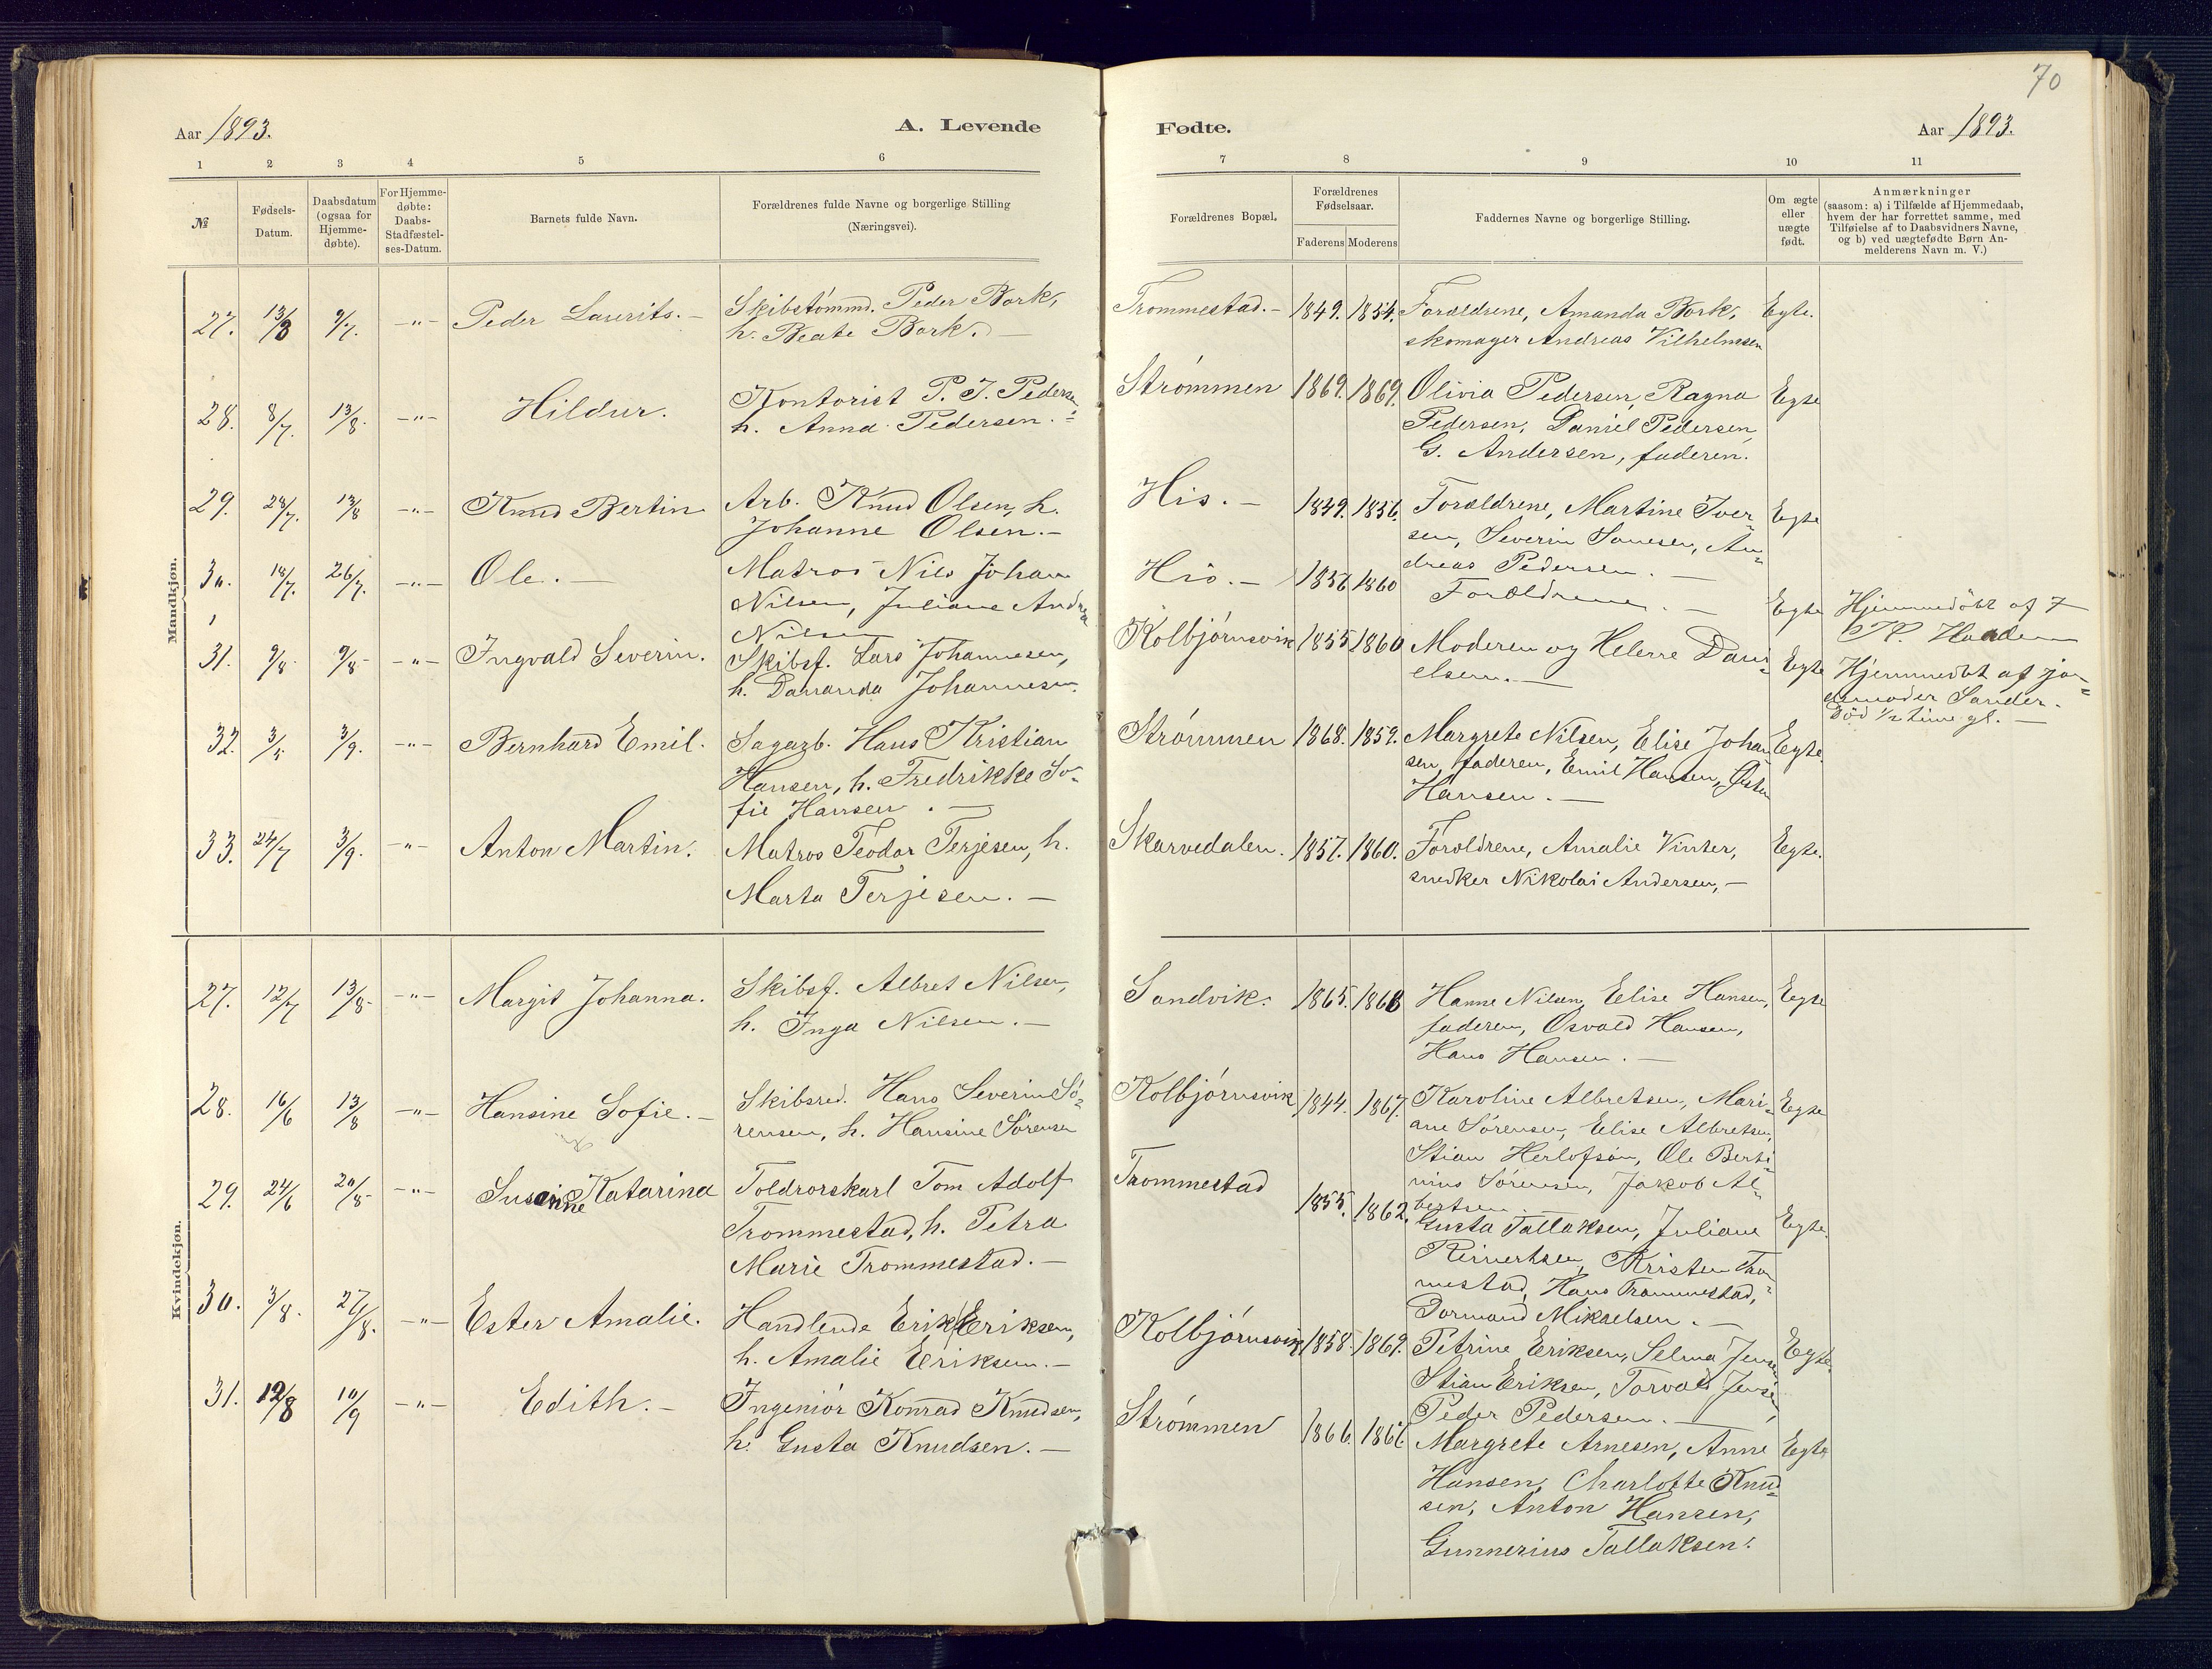 70
Aar 1893.
A. Levende
Fødte.
Aar 1893.
1 2 3 4 5 6
7 8 9 10 11
№
Fødsels-
Datum.
Daabsdatum
(ogsaa for
Hjemme-
døbte).
For Hjemme-
døbte:
Daabs-
Stadfæstel-
ses-Datum.
Barnets fulde Navn.
Forældrenes fulde Navne og borgerlige Stilling
(Næringsvei).
Forældrenes Bopæl.
Forældrenes
Fødselsaar.
Faderens Moderens
Faddernes Navne og borgerlige Stilling.
Om ægte
eller
uægte
født.
Anmærkninger
(saasom: a) i Tilfælde af Hjemmedaab,
hvem der har forrettet samme, med
Tilføielse af to Daabsvidners Navne,
og b) ved uægtefødte Børn An-
melderens Navn m. V.)
Mandkjøn.
27. 13/3 9/7. -"- Peder Laurits. -
Skibstømmd. Peder Bork,
h. Beate Bork. -
Trommestad. - 1849. 1854.
Forældrene, Amanda Bork,
skomager Andreas Vilhelmsen
Egte.
28. 8/7. 13/8. -"- Hildur.
Kontorist P. J. Pedersen,
h. Anna Pedersen. -
Strømmen 1869. 1869.
Olivia Pedersen, Ragna
Pedersen, Daniel Pedersen,
G. Andersen, faderen.
Egte
29. 23/7. 13/8 -"- Knud Bertin
Arb. Knud Olsen, h.
Johanne Olsen. -
His. - 1849. 1856.
Forældrene, Martine Iver-
sen, Severin Sanesen, An-
dreas Pedersen. -
Egte
30. 18/7. 26/7. -"- Ole. -
Matros Nils Johan
Nilsen, Juliane Andrea
Nilsen
His. - 1856 1860
Forældrene. -
Egte
Hjemmedøbt af
Haaden
31. 9/8. 9/8- -"- Ingvald Severin.
Skibsf. Lars Johannesen,
h. Dananda Johannesen.
Kolbjørnsvik 1855 1860
Moderen og Helene Dani-
elsen. -
Egte
Hjemmedbt af jor-
demoder Sander.
Død 1/2 time gl. -
32. 3/5 3/9. -"- Bernhard Emil.
Sagarb. Hans Kristian
Hansen, h. Fredrikke So-
fie Hansen. -
Strømmen 1868. 1859.
Margrete Nilsen, Elise Johan
sen, faderen, Emil Hansen, Østen
Hansen. -
Egte.
33. 24/7 3/9. -"- Anton Martin.
Matros Teodor Terjesen, h.
Marta Terjesen. -
Skarvedalen. 1857. 1860.
Forældrene, Amalie Vinter,
snedker Nikolai Andersen, -
Egte.
Kvindekjøn.
27. 12/7 13/8- -"- Margit Johanna.
Skibsf. Albret Nilsen,
h. Inga Nilsen. -
Sandvik. 1865. 1868
Hanne Nilsen, Elise Hansen,
faderen, Osvald Hansen,
Hans Hansen. -
Egte
28. 16/6 13/8 -"- Hansine Sofie. -
Skibsred. Hans Severin Sø-
rensen, h. Hansine Sørensen
Kolbjørnsvik 1844. 1867.
Karoline Albretsen, Mari-
ane Sørensen, Elise Albretsen,
Stian Herlofson, Ole Berti-
nius Sørensen, Jakob Al-
bertsen
Egte
29. 24/6 20/8- -"- Susanne Katarina
Toldrorskarl Tom Adolf
Trommestad, h. Petra
Marie Trommestad. -
Trommestad 1855. 1862.
Gusta Tallaksen, Juliane
Reinertsen, Kristen Trom
mestad, Hans Trommestad,
Dormand Mikaelsen. -
Egte.
30. 3/8. 27/8. -"- Ester Amalie.
Handlende Erik Eriksen,
h. Amalie Eriksen. -
Kolbjørnsvik 1858. 1869.
Petrine Eriksen, Selma Jensen
Stian Eriksen, Torvald Jensen,
Peder Pedersen. -
Egte.
31. 12/8 10/9 -"- Edith. -
Ingeniør Konrad Knudsen,
h. Gusta Knudsen. -
Strømmen 1866. 1866.
Margrete Arnesen, Anne
Hansen, Charlotte Knud-
sen, Anton Hansen,
Gunnerius Tallaksen.
Egte